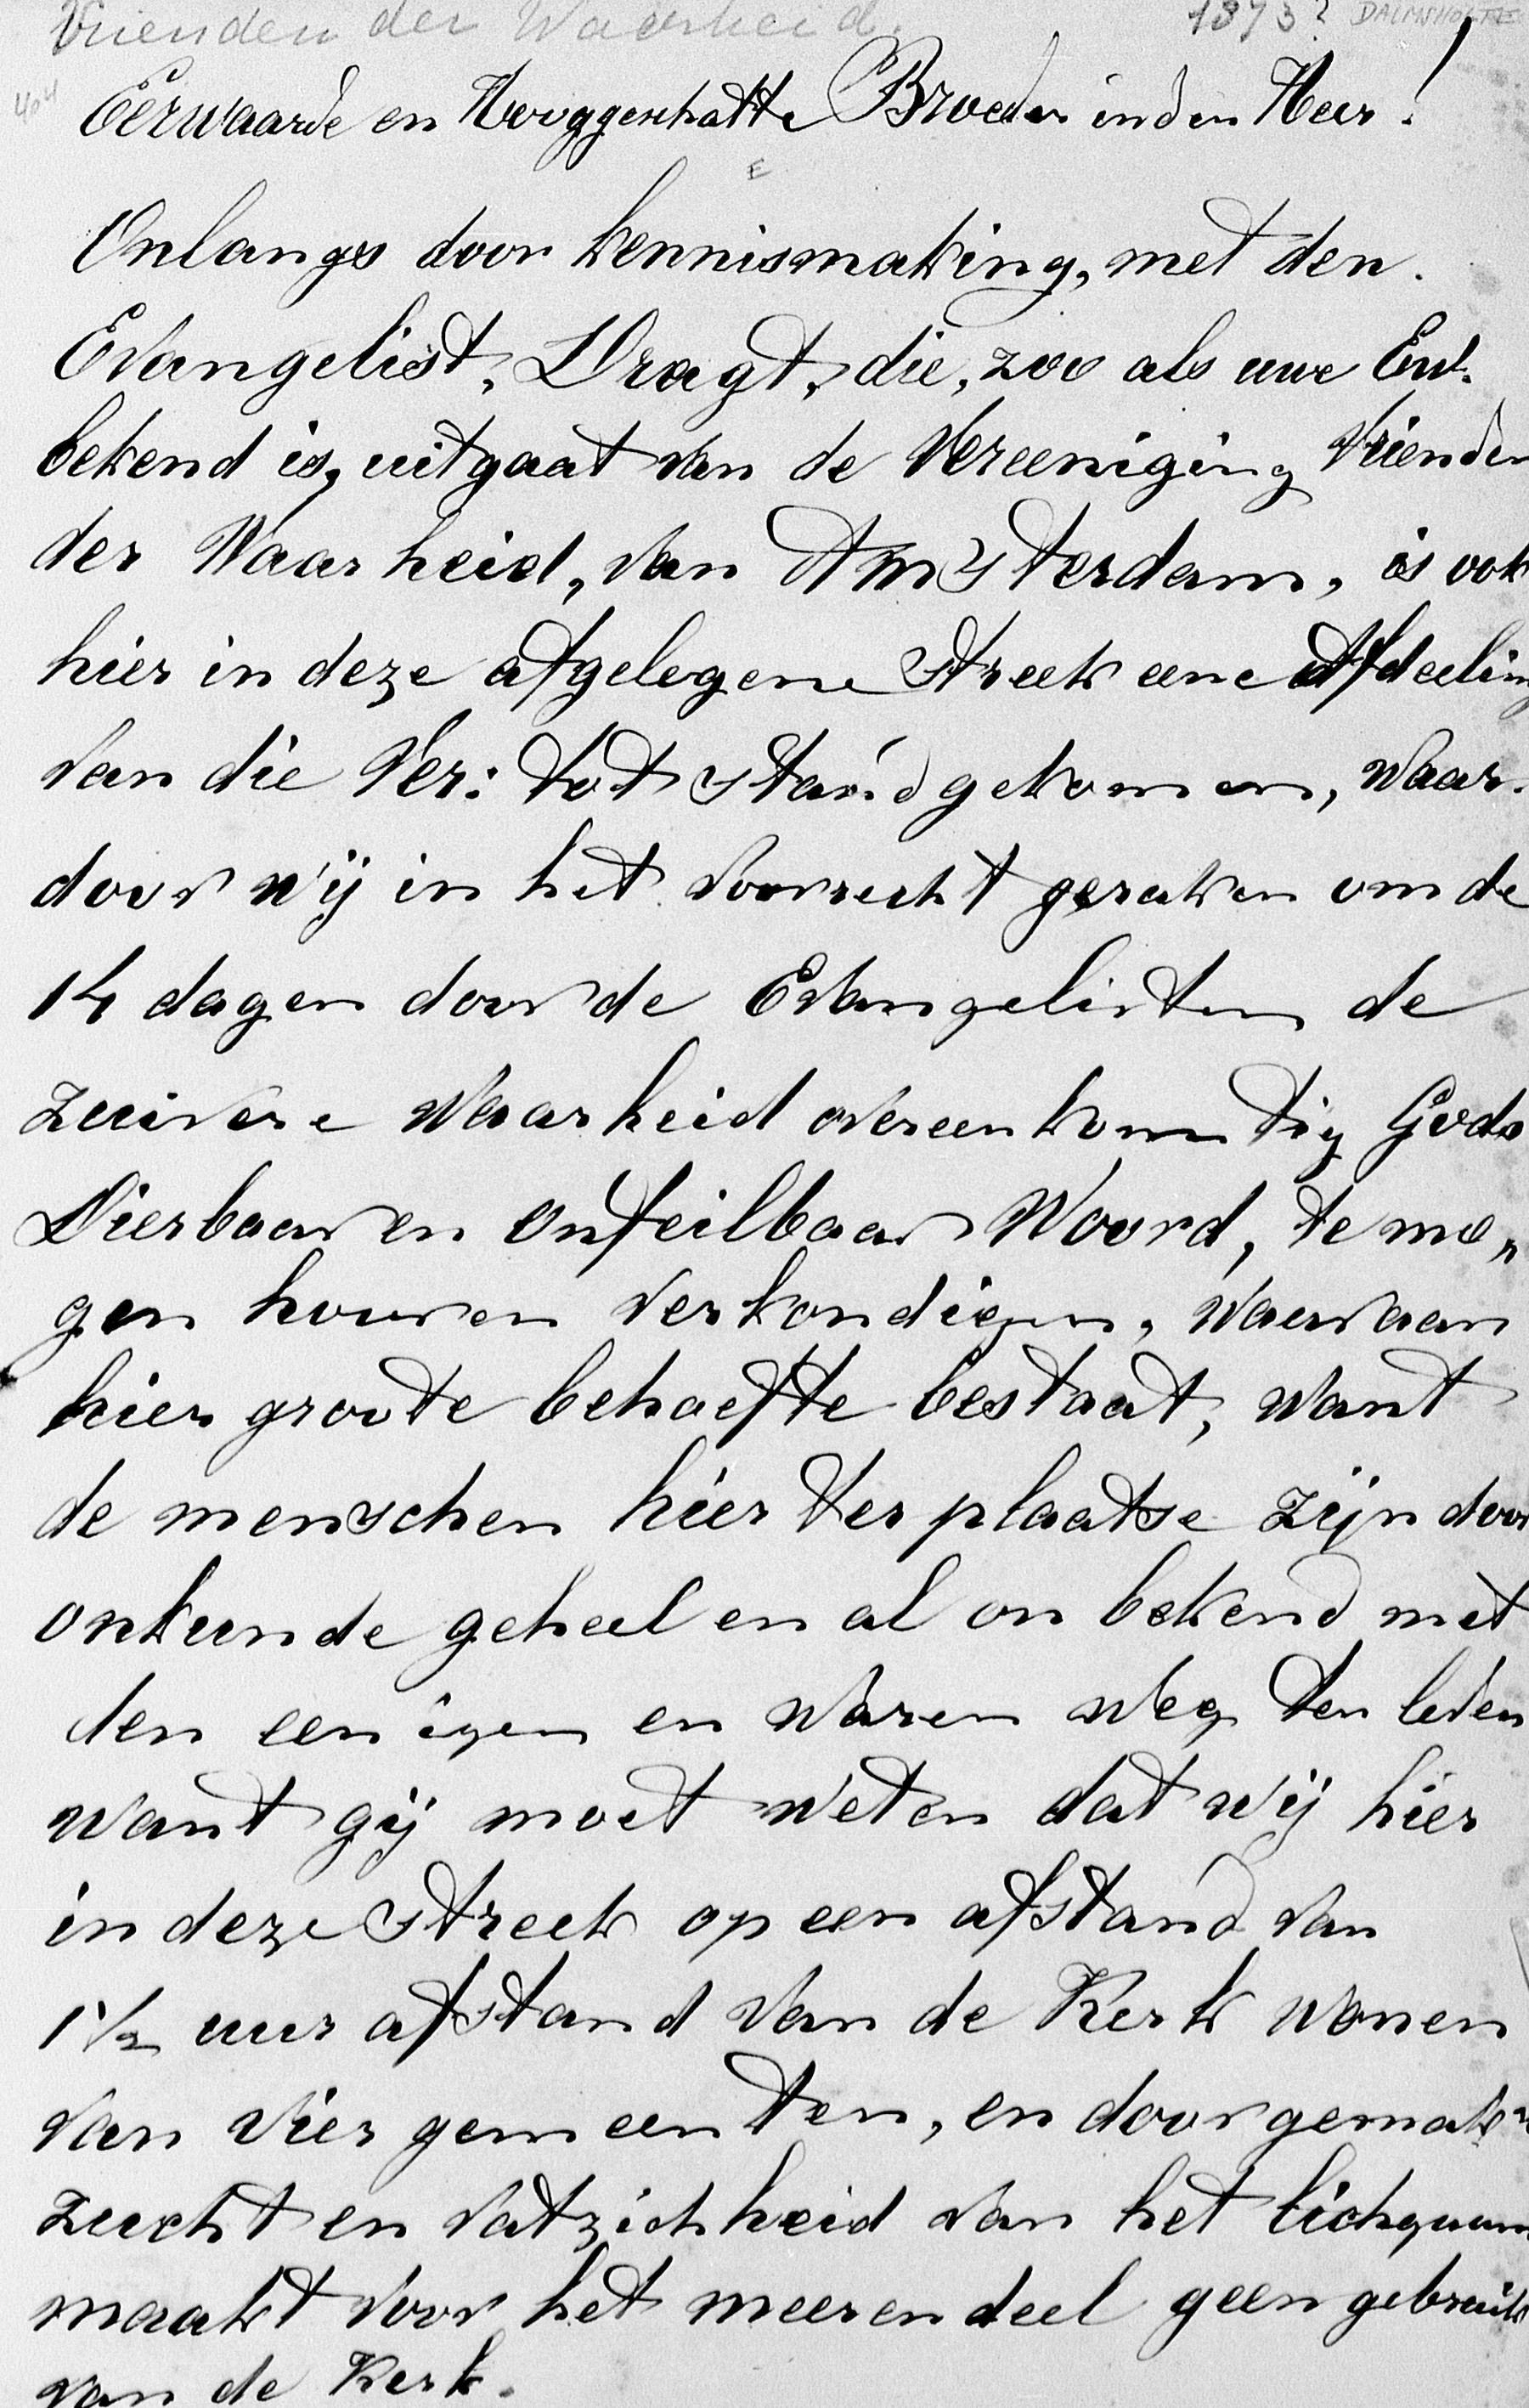 Vrienden der Waarheid. 1873? DALMSHOLTE
404
Eerwaarde en Hooggeschatte Broeder in den Heer!
E
Onlangs door kennismaking, met den.
Evangelist, Dragt, die, zoo als uwe Ew.
bekend is, uitgaat van de Vereeniging Vrienden
der Waarheid, van Amsterdam, is ook
hier in deze afgelegene Streek eene Afdeeling
van die Ver: tot stand gekomen, waar-
door wij in het voorrecht geraken om de
14 dagen door de Evangelisten de
zuivere Waarheid overeenkomstig Gods
Dierbaar en onfeilbaar Woord, te mo„
gen hooren verkondigen, waaraan
hier groote behoefte bestaat, want
de menschen hier ter plaatse zijn door
onkunde geheel en al on bekend met
den eenigen en waren weg ten leven
want gij moet weten dat wij hier
in deze Streek op een afstand van
1½ uur afstand van de Kerk wonen
van vier gemeenten, en door gemak„
zucht en vatzichheid van het lichgaam
maakt voor het meerendeel geen gebruik
van de Kerk.